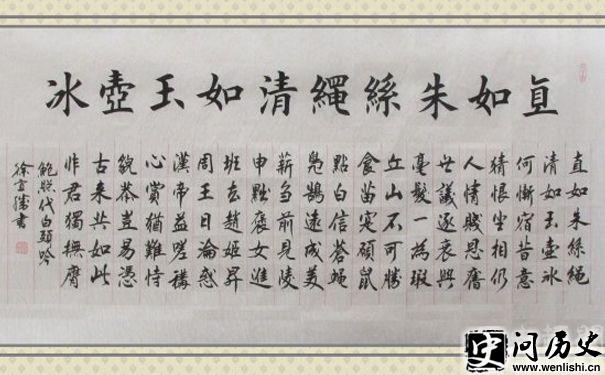 直如朱絲繩清如玉壺冰
直如朱絲繩
清如玉壺冰
何慚宿昔意
猜恨坐相仍
人情賤恩舊
世議逐衰興
毫髮一為瑕
丘山不可勝
食苗實碩鼠
點白信蒼蠅
鳧鵠遠成美
薪芻前見陵
申黜褒女進
班去趙姬昇
周王日淪惑
漢帝益嗟稱
心賞猶難恃
貌恭豈易憑
古來共如此
非君獨撫膺
鮑照代白頭吟
徐書
史 问历史
www.wenlishi.cn